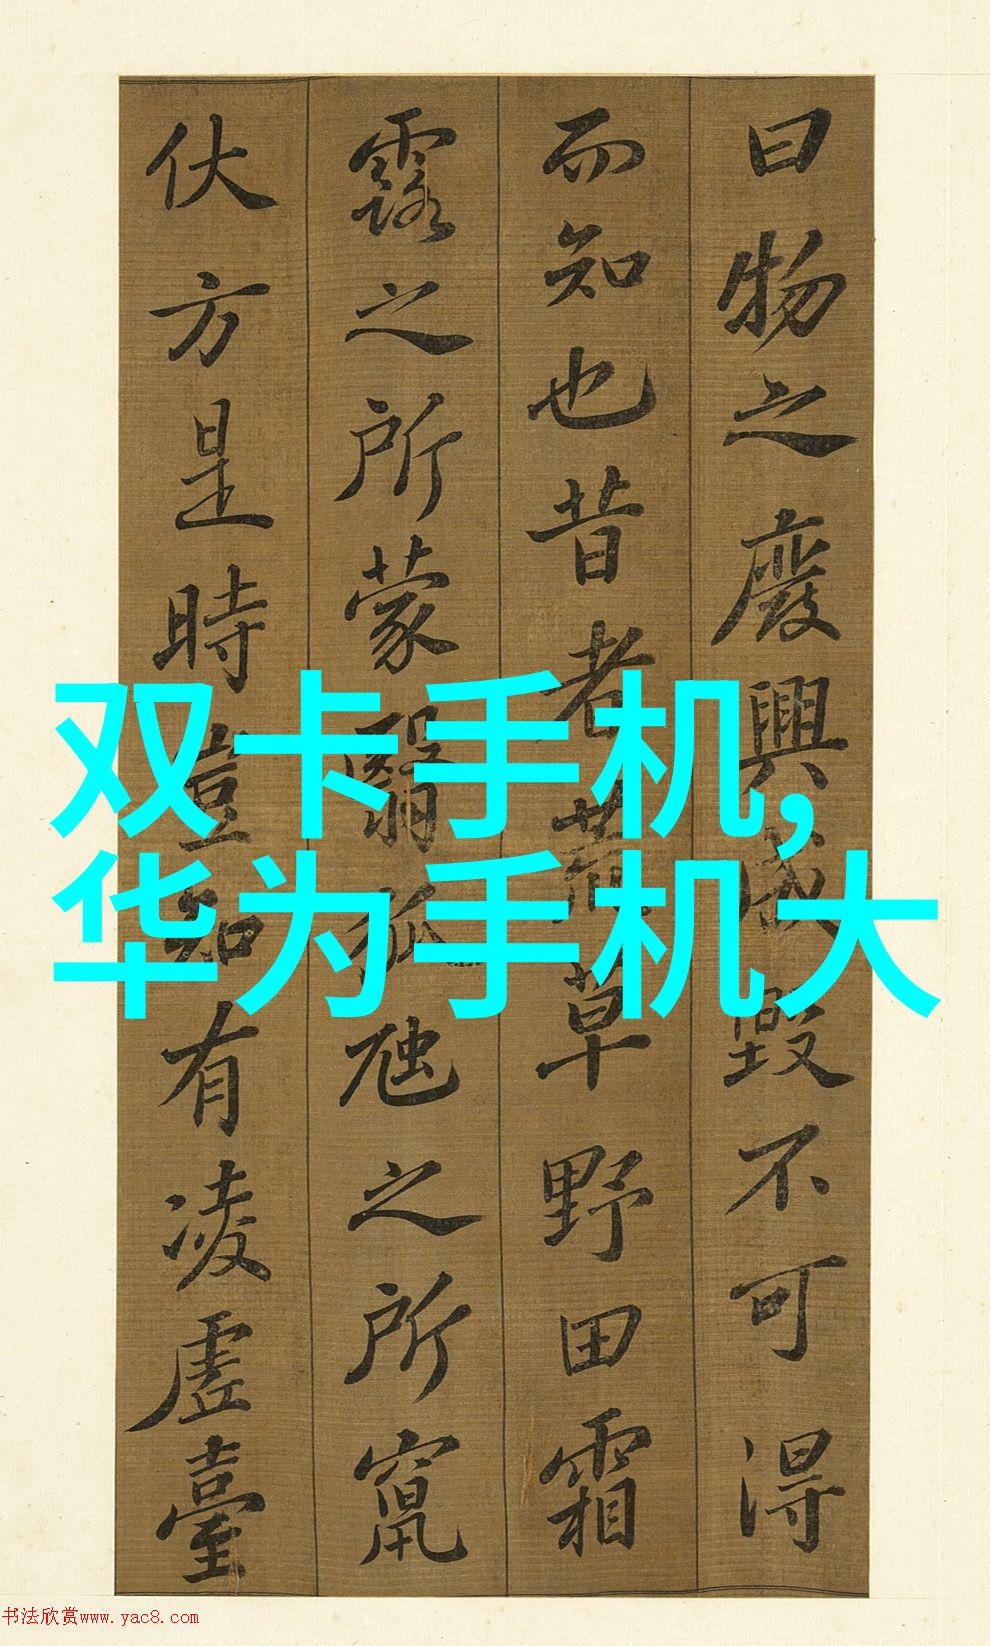 曰物之廢興成毀不可得
而知也昔者荒草野田霜
露之所蒙翳狐虺之所竄
伏方是時豈知有凌虛臺
双卡手机,
华为手机大
书法欣赏www.yac8.com